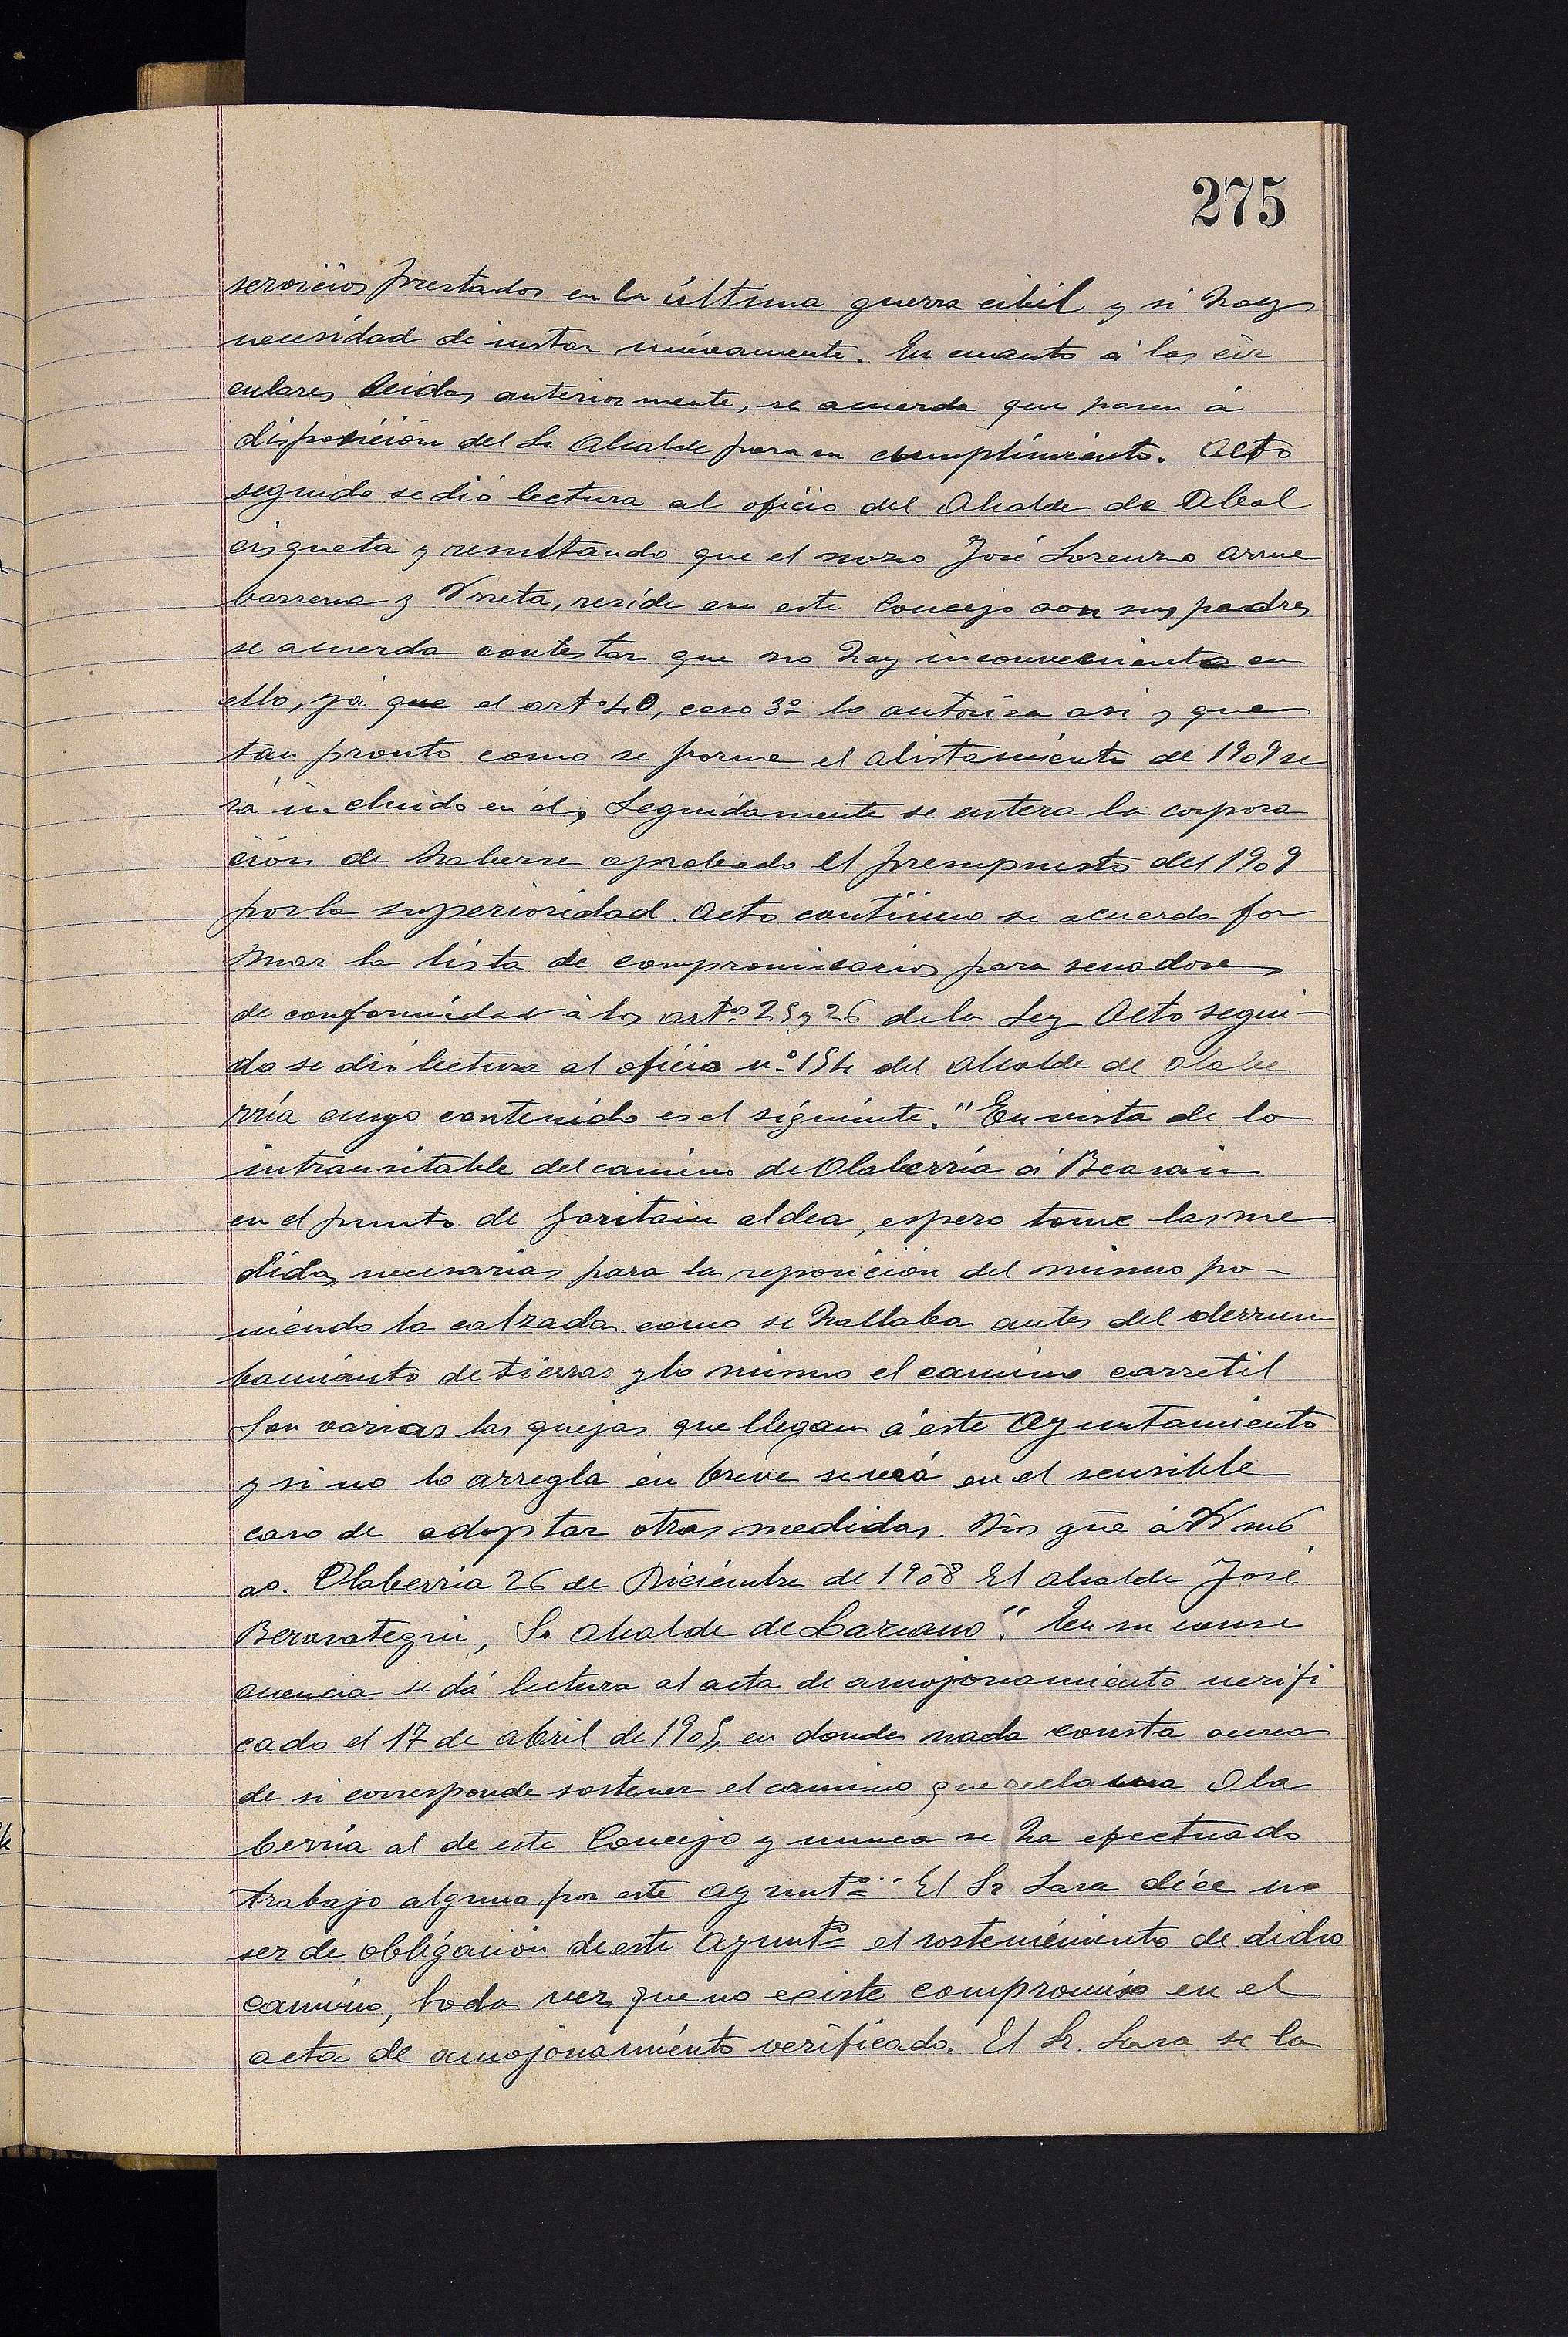 275
servicios prestados en la última guerra cibil y si hay
necesidad de instar nuevamente. En cuanto á las cir
culares leidas anteriormente, se acuerda que pasen á
disposición del Sr Alcalde para su cumplimiento. Acto
seguido se dió lectura al oficio del Alcalde de Abal
cisqueta y resultando que el mozo José Lorenzo Arrue
barrena y Urreta, reside en este Concejo con sus padres
se acuerda contestar que no hay inconveniente en
ello, ya que el artº 40, caso 3º lo autoriza asi y que
tan pronto como se forme el alistamiento de 1909 se
rá incluido en él, Seguidamente se entera la corpora
ción de haberse aprobado el presupuesto del 1909
por la superioridad. Acto contínuo se acuerda for
mar la lista de compromisarios para senadores
de conformidad á los artos 25 y 26 de la Ley Acto segui-
do se dió lectura al oficio nº 154 del Alcalde de Olabe
rría cuyo contenido es el siguiente. "En vista de lo
intransitable del camino de Olaberría á Beasain
en el punto de Garitain aldea, espero tome las me
didas necesarias para la reposición del mismo po-
niendo la calzada como se hallaba antes del derrum
bamiento de tierras y lo mismo el camino carretil
Son varias las quejas que llegan á este Ayuntamiento
y si no lo arregla en breve se verá en el sensible
caso de adoptar otras medidas. Dios gue á V ms
as. Olaberria 26 de Diciembre de 1908 El alcalde José
Berasategui, Sr alcalde de Lazcano". En su conse
cuencia se dá lectura al acta de amojonamiento verifi
cado el 17 de abril de 1905, en donde nada consta acerca
de si corresponde sostener el camino que reclama Ola
berria al de este Concejo y nunca se ha efectuado
trabajo alguno por este Ayuntº El Sr Lasa dice no
ser de obligación de este Ayuntº el sostenimiento de dicho
camino, toda vez que no existe compromiso en el
acta de amojonamiento verificado. El Sr. Lasa se la